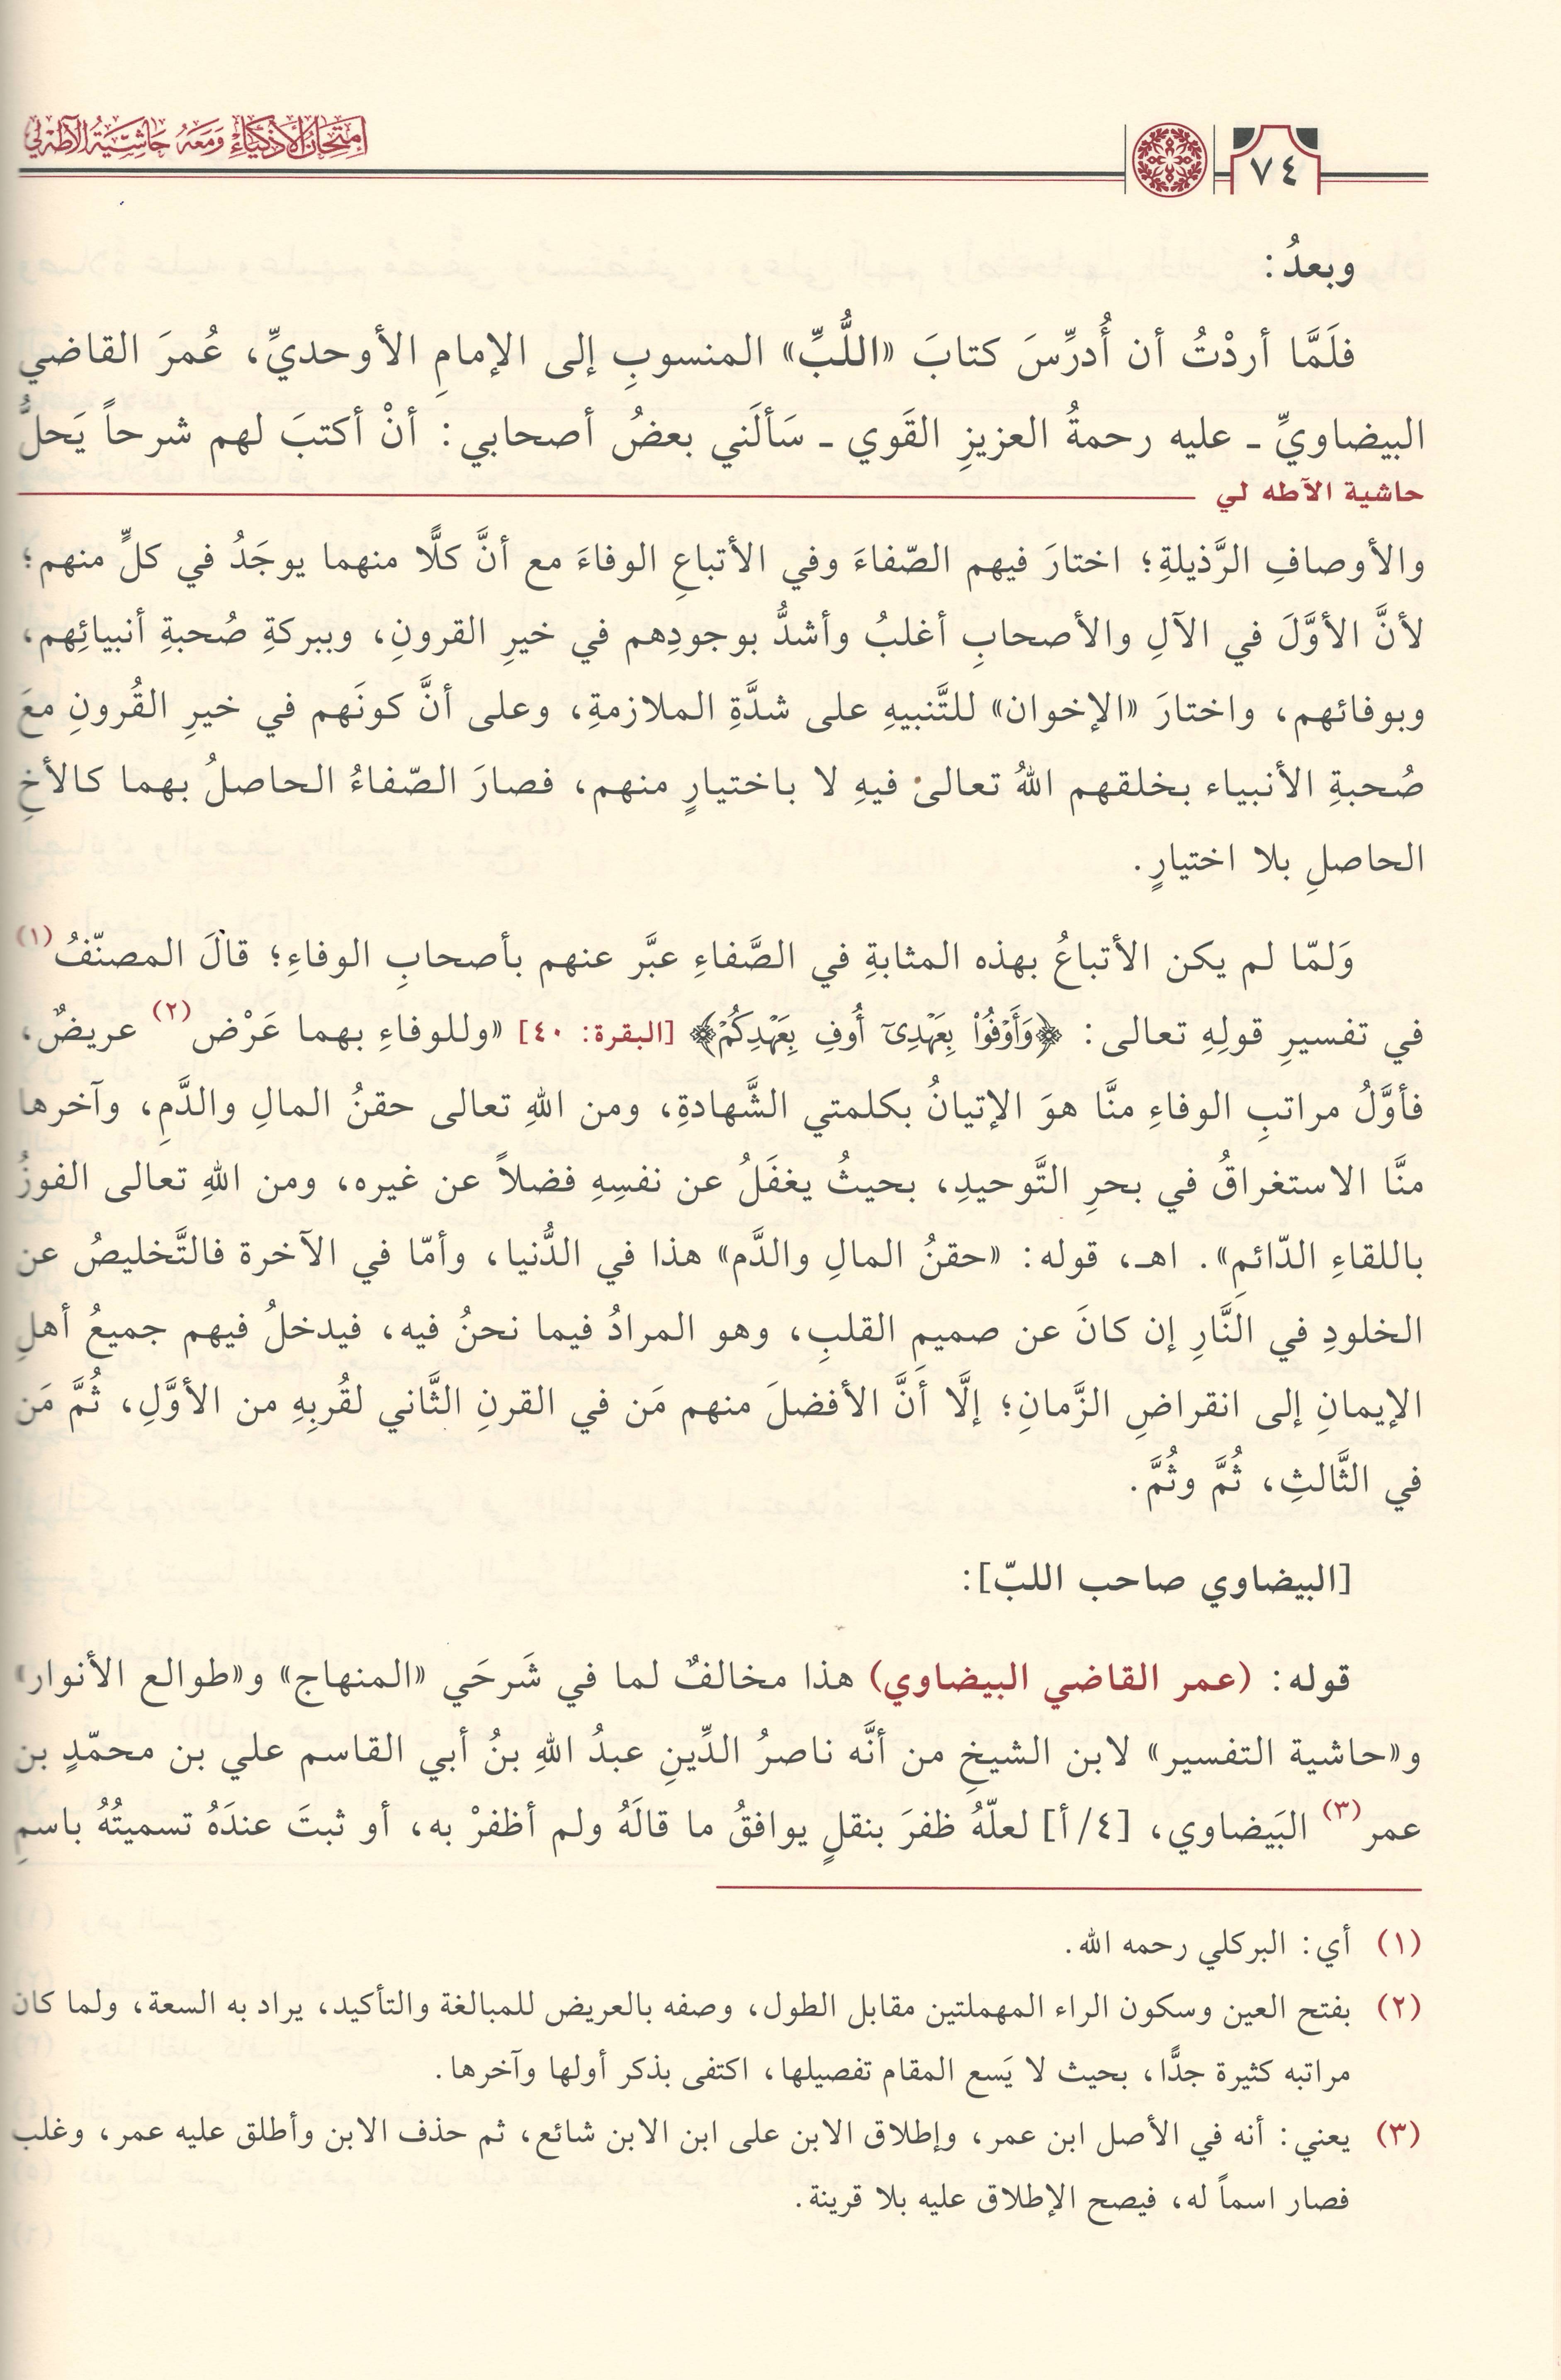 ٧٤
امتحان الأذكياء ومعه حاشية الآطه لي
وبعدُ:
فلَمَّا أردْتُ أن أُدرِّسَ كتابَ «اللُّبِّ» المنسوبِ إلى الإمامِ الأوحديِّ، عُمرَ القاضي
البيضاويِّ ـ عليه رحمةُ العزيزِ القَوي ـ سَألَني بعضُ أصحابي: أنْ أكتبَ لهم شرحاً يَحلُّ
حاشية الآطه لي
والأوصافِ الرَّذيلةِ؛ اختارَ فيهم الصّفاءَ وفي الأتباعِ الوفاءَ مع أنَّ كلًّا منهما يوجَدُ في كلٍّ منهم؛
لأنَّ الأوَّلَ في الآلِ والأصحابِ أغلبُ وأشدُّ بوجودِهم في خيرِ القرونِ، وببركةِ صُحبةِ أنبيائِهم،
وبوفائهم، واختارَ «الإخوان» للتَّنبيهِ على شدَّةِ الملازمةِ، وعلى أنَّ كونَهم في خيرِ القُرونِ معَ
صُحبةِ الأنبياء بخلقهم اللهُ تعالىٰ فيهِ لا باختيارٍ منهم، فصارَ الصّفاءُ الحاصلُ بهما كالأخِ
الحاصلِ بلا اختيارٍ.
وَلمّا لم يكن الأتباعُ بهذه المثابةِ في الصَّفاءِ عبَّر عنهم بأصحابِ الوفاءِ؛ قالَ المصنّفُ(١)
في تفسيرِ قولِهِ تعالى: ﴿وَأَوْفُوا۟ بِعَهْدِىٓ أُوفِ بِعَهْدِكُمْ﴾ [البقرة: ٤٠] «وللوفاءِ بهما عَرْض(٢) عريضٌ،
فأوَّلُ مراتبِ الوفاءِ منَّا هوَ الإتيانُ بكلمتي الشَّهادةِ، ومن اللهِ تعالى حقنُ المالِ والدَّمِ، وآخرها
منَّا الاستغراقُ في بحرِ التَّوحيدِ، بحيثُ يغفَلُ عن نفسِهِ فضلاً عن غيره، ومن اللهِ تعالى الفوزُ
باللقاءِ الدّائمِ». اهـ، قوله: «حقنُ المالِ والدَّم» هذا في الدُّنيا، وأمّا في الآخرة فالتَّخليصُ عن
الخلودِ في النَّارِ إن كانَ عن صميمِ القلبِ، وهو المرادُ فيما نحنُ فيه، فيدخلُ فيهم جميعُ أهلِ
الإيمانِ إلى انقراضِ الزَّمانِ؛ إلَّا أنَّ الأفضلَ منهم مَن في القرنِ الثَّاني لقُربِهِ من الأوَّلِ، ثُمَّ مَن
في الثَّالثِ، ثُمَّ وثُمَّ.
[البيضاوي صاحب اللبّ]:
قوله: (عمر القاضي البيضاوي) هذا مخالفٌ لما في شَرحَي «المنهاج» و«طوالع الأنوار»
و«حاشية التفسير» لابن الشيخِ من أنَّه ناصرُ الدِّينِ عبدُ اللهِ بنُ أبي القاسم علي بن محمّدٍ بن
عمر(٣) البَيضاوي، [٤/أ] لعلّهُ ظفرَ بنقلٍ يوافقُ ما قالَهُ ولم أظفرْ به، أو ثبتَ عندَهُ تسميتُهُ باسمِ
(١) أي: البركلي رحمه الله.
(٢) بفتح العين وسكون الراء المهملتين مقابل الطول، وصفه بالعريض للمبالغة والتأكيد، يراد به السعة، ولما كان
مراتبه كثيرة جدًّا، بحيث لا يَسع المقام تفصيلها، اكتفى بذكر أولها وآخرها.
(٣) يعني: أنه في الأصل ابن عمر، وإطلاق الابن على ابن الابن شائع، ثم حذف الابن وأطلق عليه عمر، وغلب
فصار اسماً له، فيصح الإطلاق عليه بلا قرينة.